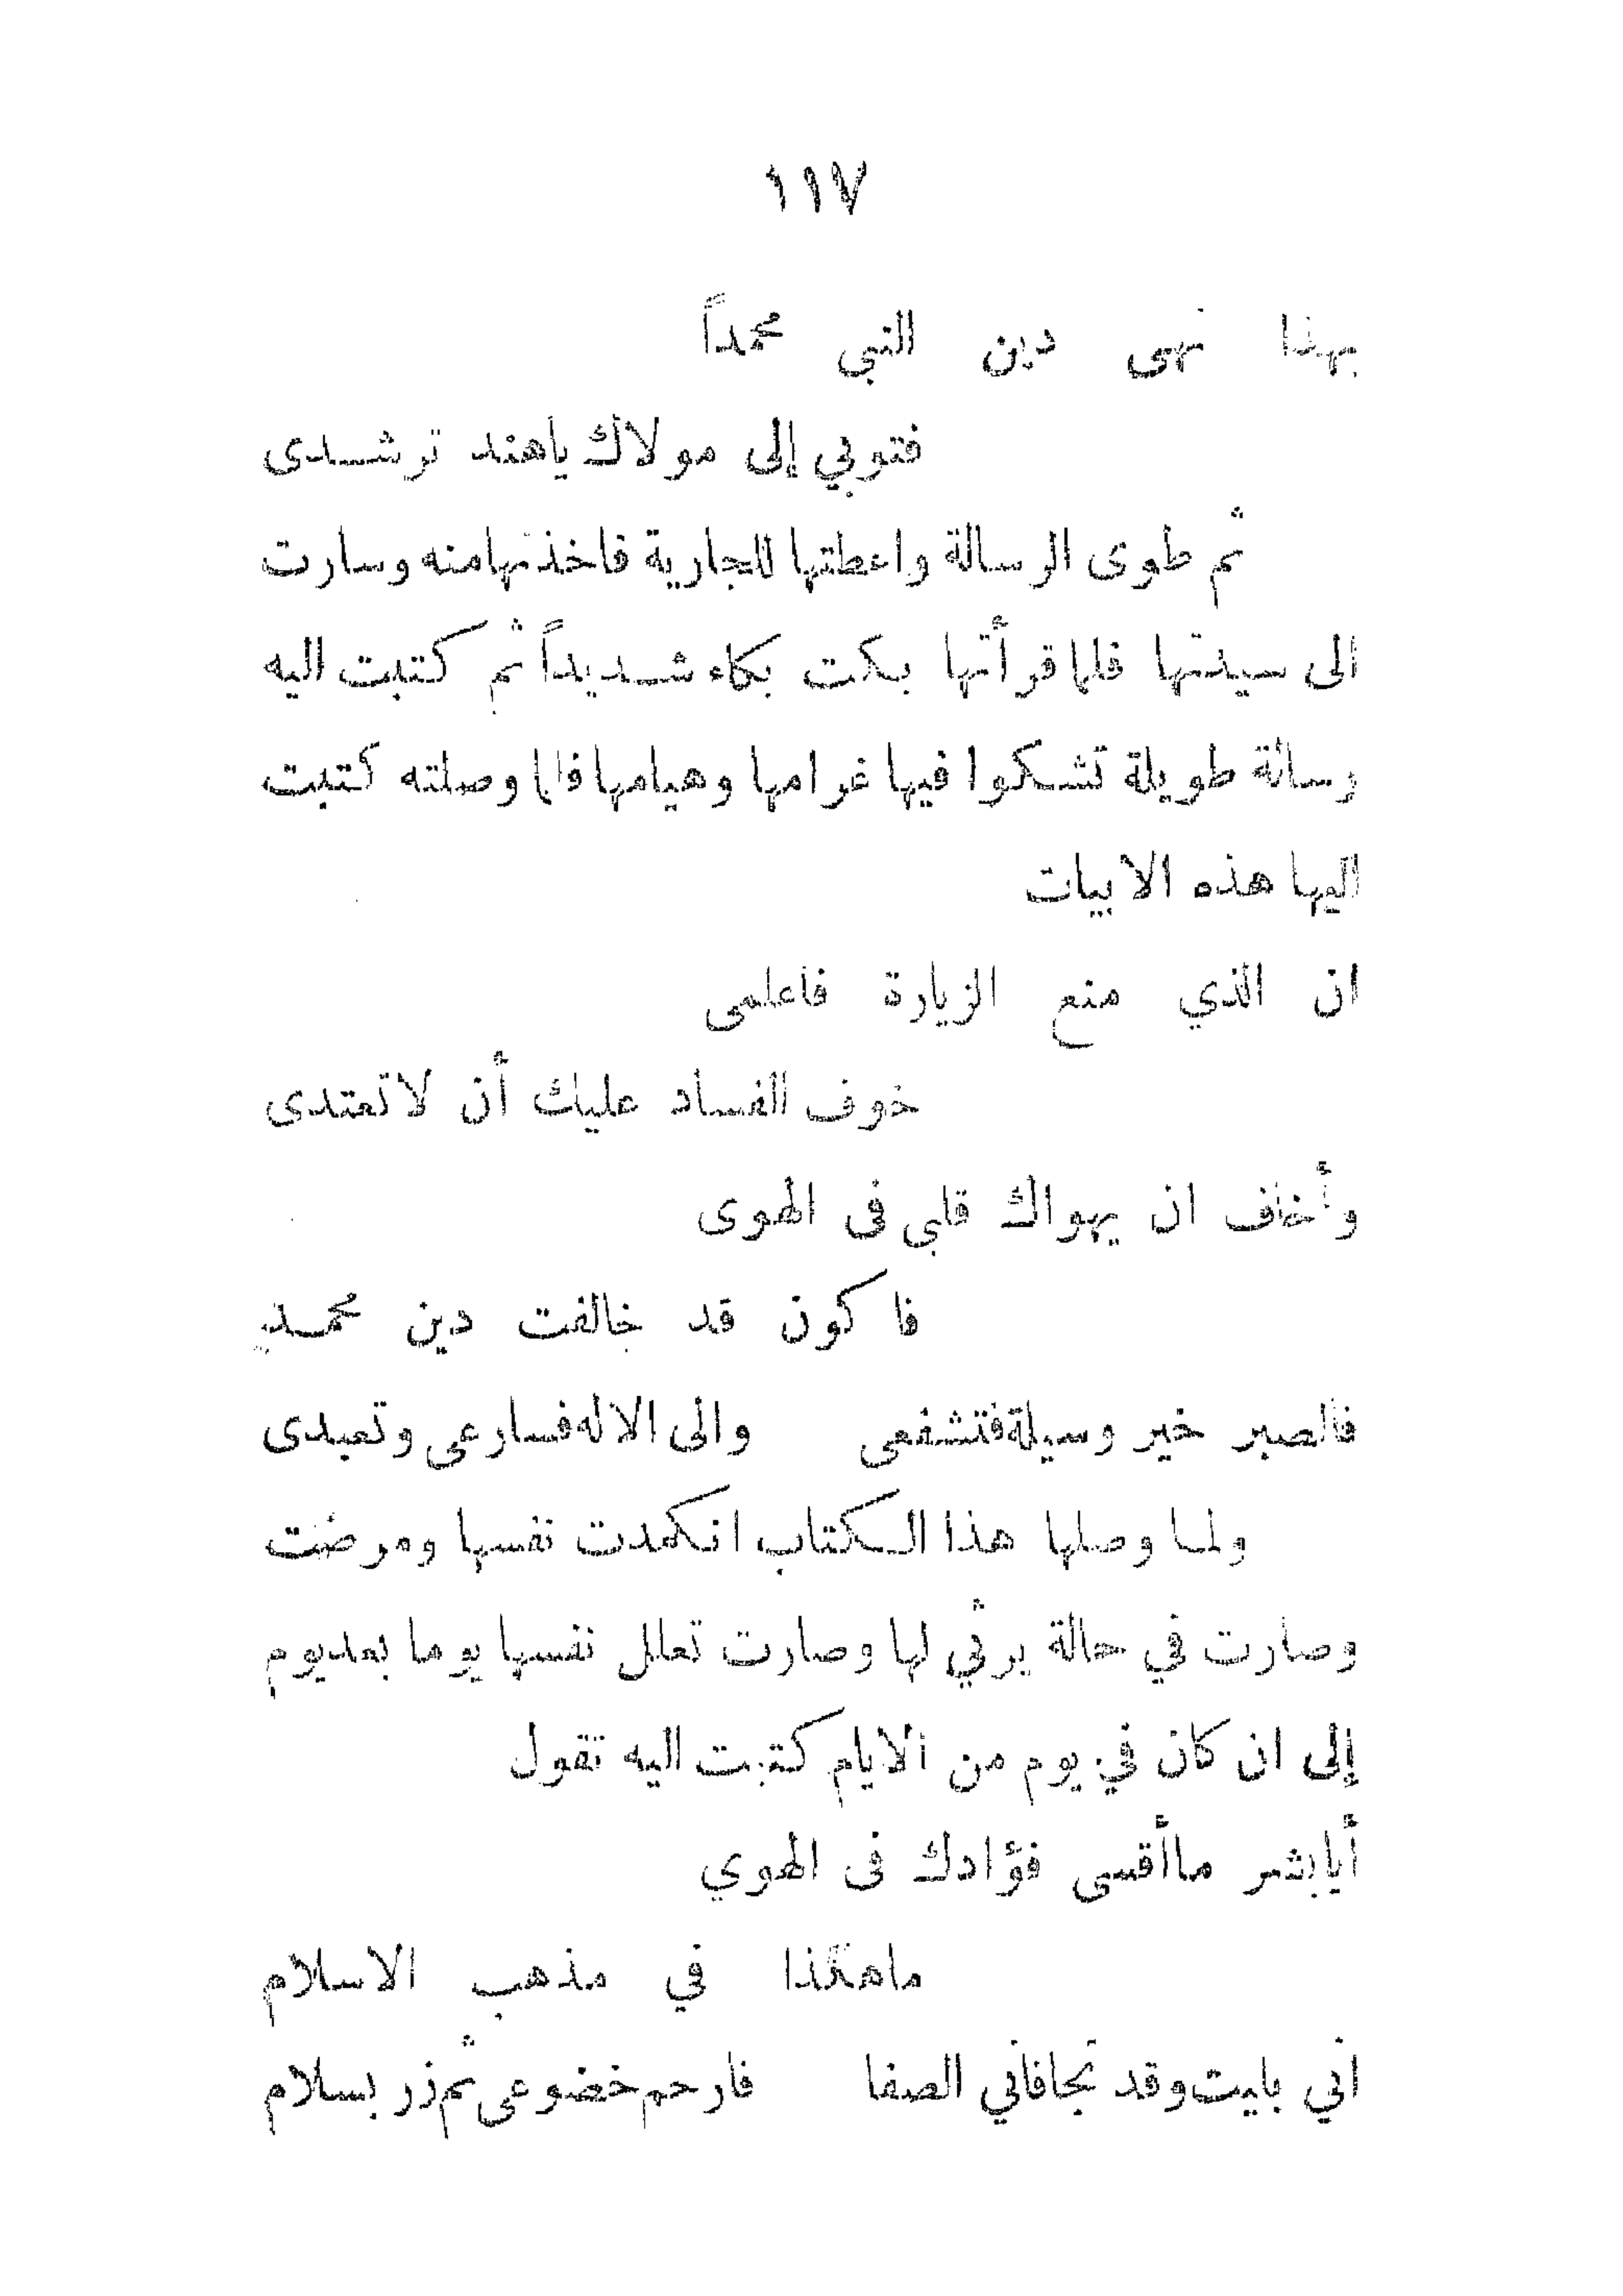 ١١٧
بهذا نهى دين النبي محمداً
فتوبي إلى مولاك ياهند ترشدى
ثم طوى الرسالة واعطتها للجارية فاخذتهامنه وسارت
الى سيدتها فلما قرأتها بكت بكاء شديداً ثم كتبت اليه
رسالة طويلة تشكوا فيها غرامها وهيامها فلما وصلته كتبت
اليها هذه الابيات
ان الذي منع الزيارة فاعلمى
خوف الفساد عليك أن لاتعتدى
وأخاف ان يهواك قلبى فى الهوى
فاكون قد خالفت دين محمد
فالصبر خير وسيلة فتشفعى والى الاله فسارعى وتعبدى
ولما وصلها هذا الكتاب انكمدت نفسها ومرضت
وصارت في حالة يرثي لها وصارت تعلل نفسها يوما بعديوم
إلى ان كان في يوم من الايام كتبت اليه تقول
أيابشر ماأقسى فؤادك فى الهوي
ماهكذا في مذهب الاسلام
اني بليت وقد تجافاني الصفا فارحم خضوعى ثم زر بسلام